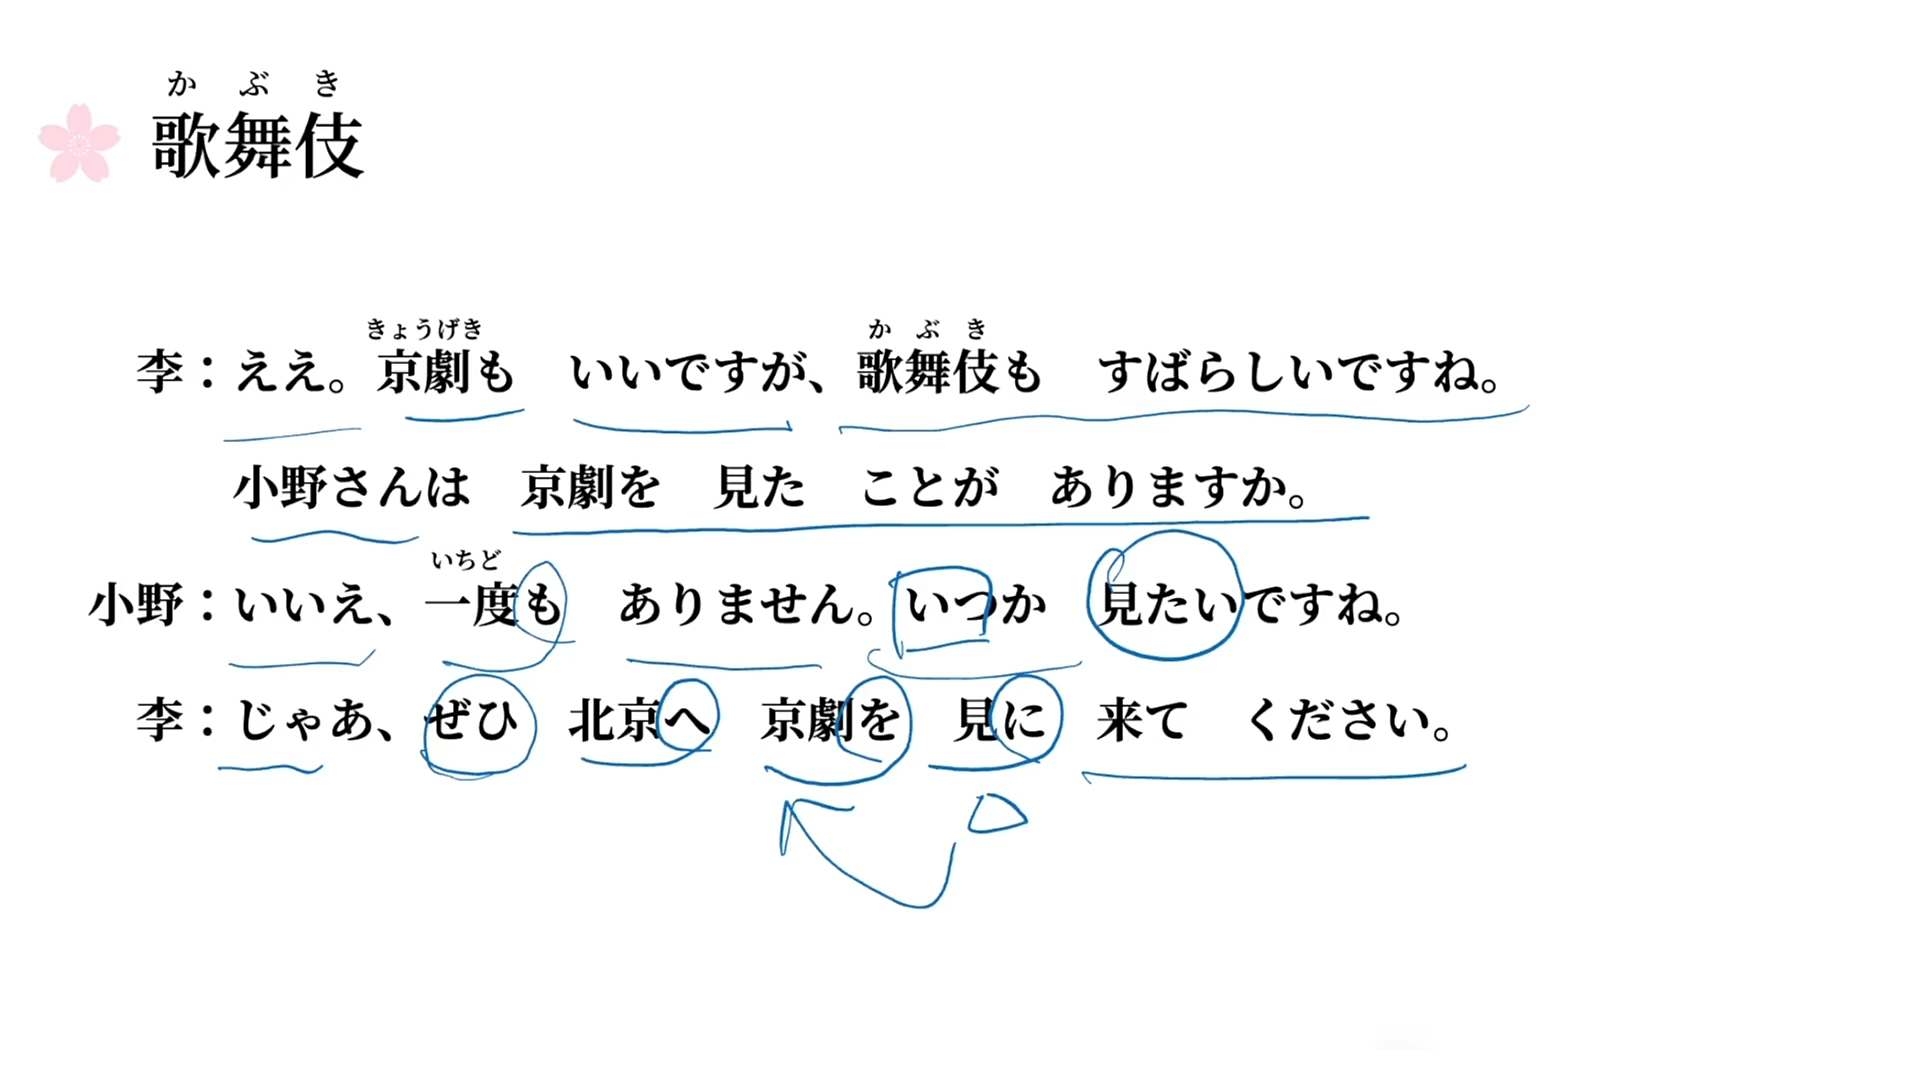 かぶき
歌舞伎
きょうげき かぶき
李：ええ。京劇も　いいですが、歌舞伎も　すばらしいですね。
小野さんは　京劇を　見た　ことが　ありますか。
いちど
小野：いいえ、一度も　ありません。いつか　見たいですね。
李：じゃあ、ぜひ　北京へ　京劇を　見に　来て　ください。